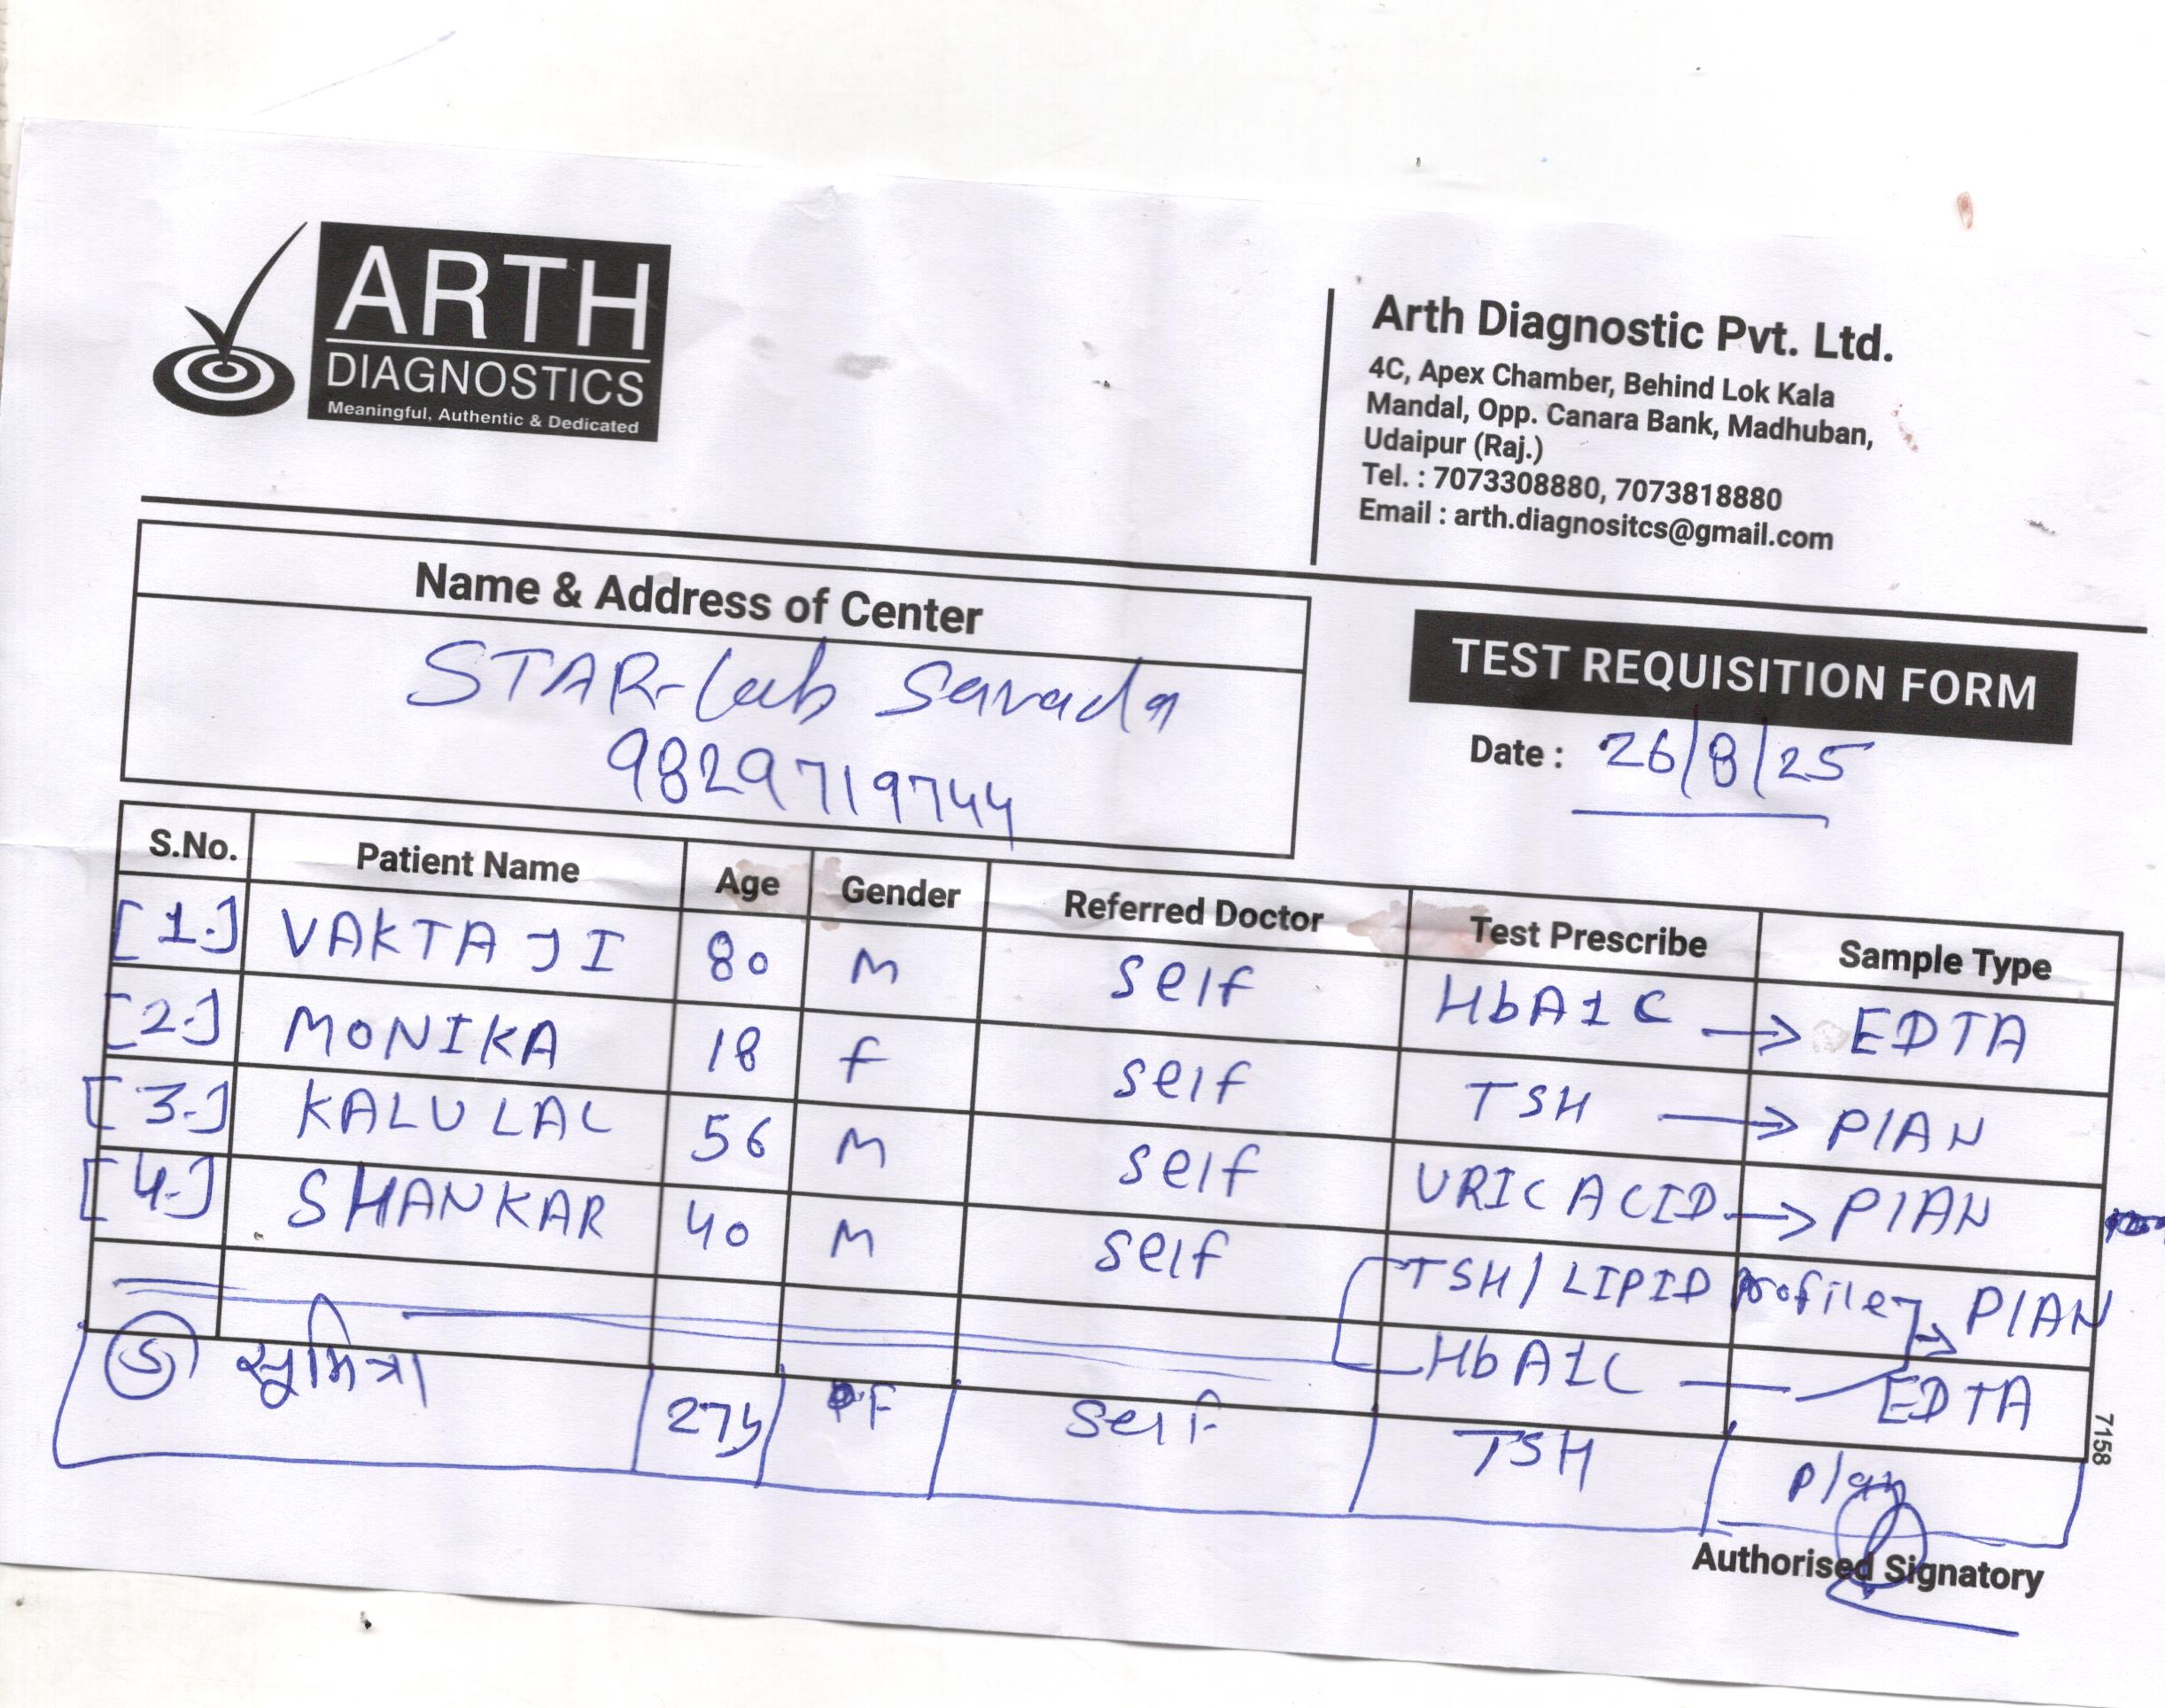 ARTH
DIAGNOSTICS
Meaningful, Authentic & Dedicated
Arth Diagnostic Pvt. Ltd.
4C, Apex Chamber, Behind Lok Kala
Mandal, Opp. Canara Bank, Madhuban,
Udaipur (Raj.)
Tel. : 7073308880, 7073818880
Email : arth.diagnositcs@gmail.com
Name & Address of Center
STAR-Lab Sarada
9829719744
TEST REQUISITION FORM
Date : 26/8/25
S.No. Patient Name Age Gender Referred Doctor Test Prescribe Sample Type
[1.] VAKTA JI 80 M self HbA1C → EDTA
[2.] MONIKA 18 F self TSH → PlAN
[3.] KALU LAL 56 M self URIC ACID → PlAN
[4.] SHANKAR 40 M self TSH/LIPID profile → PlAN
HbA1C — EDTA
5 सुमित्रा 27y F Self TSH plan
7158
Authorised Signatory